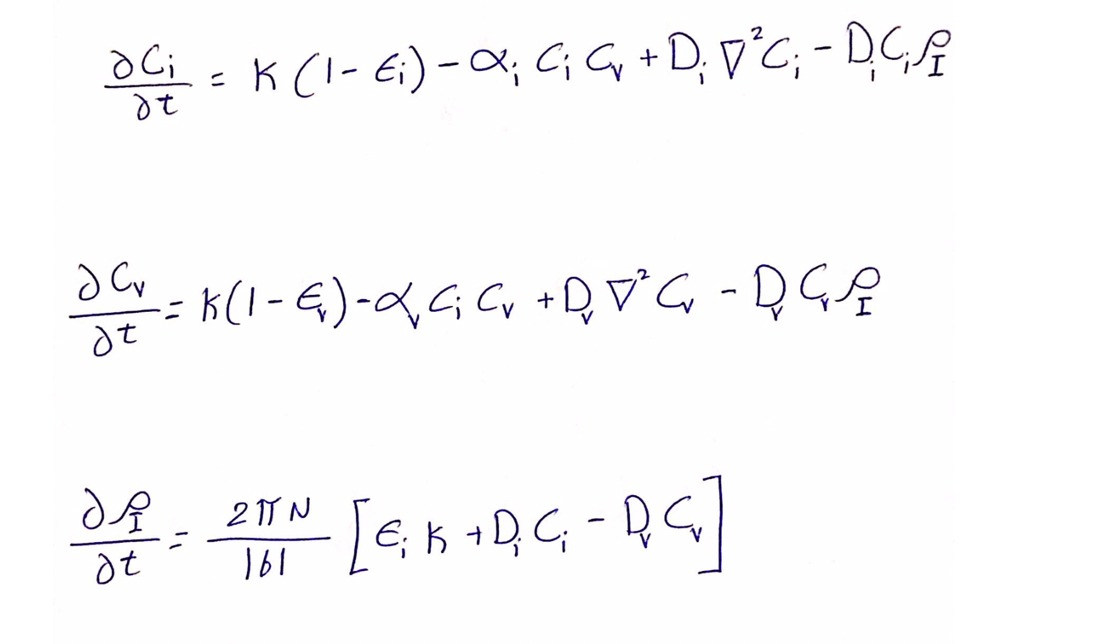 ∂Cᵢ/∂t = K(1 - ϵᵢ) - αᵢ Cᵢ Cᵥ + Dᵢ ∇² Cᵢ - Dᵢ Cᵢ ρ_I
∂Cᵥ/∂t = K(1 - ϵᵥ) - αᵥ Cᵢ Cᵥ + Dᵥ ∇² Cᵥ - Dᵥ Cᵥ ρ_I
∂ρ_I/∂t = 2πN/|b| [ϵᵢ K + Dᵢ Cᵢ - Dᵥ Cᵥ]